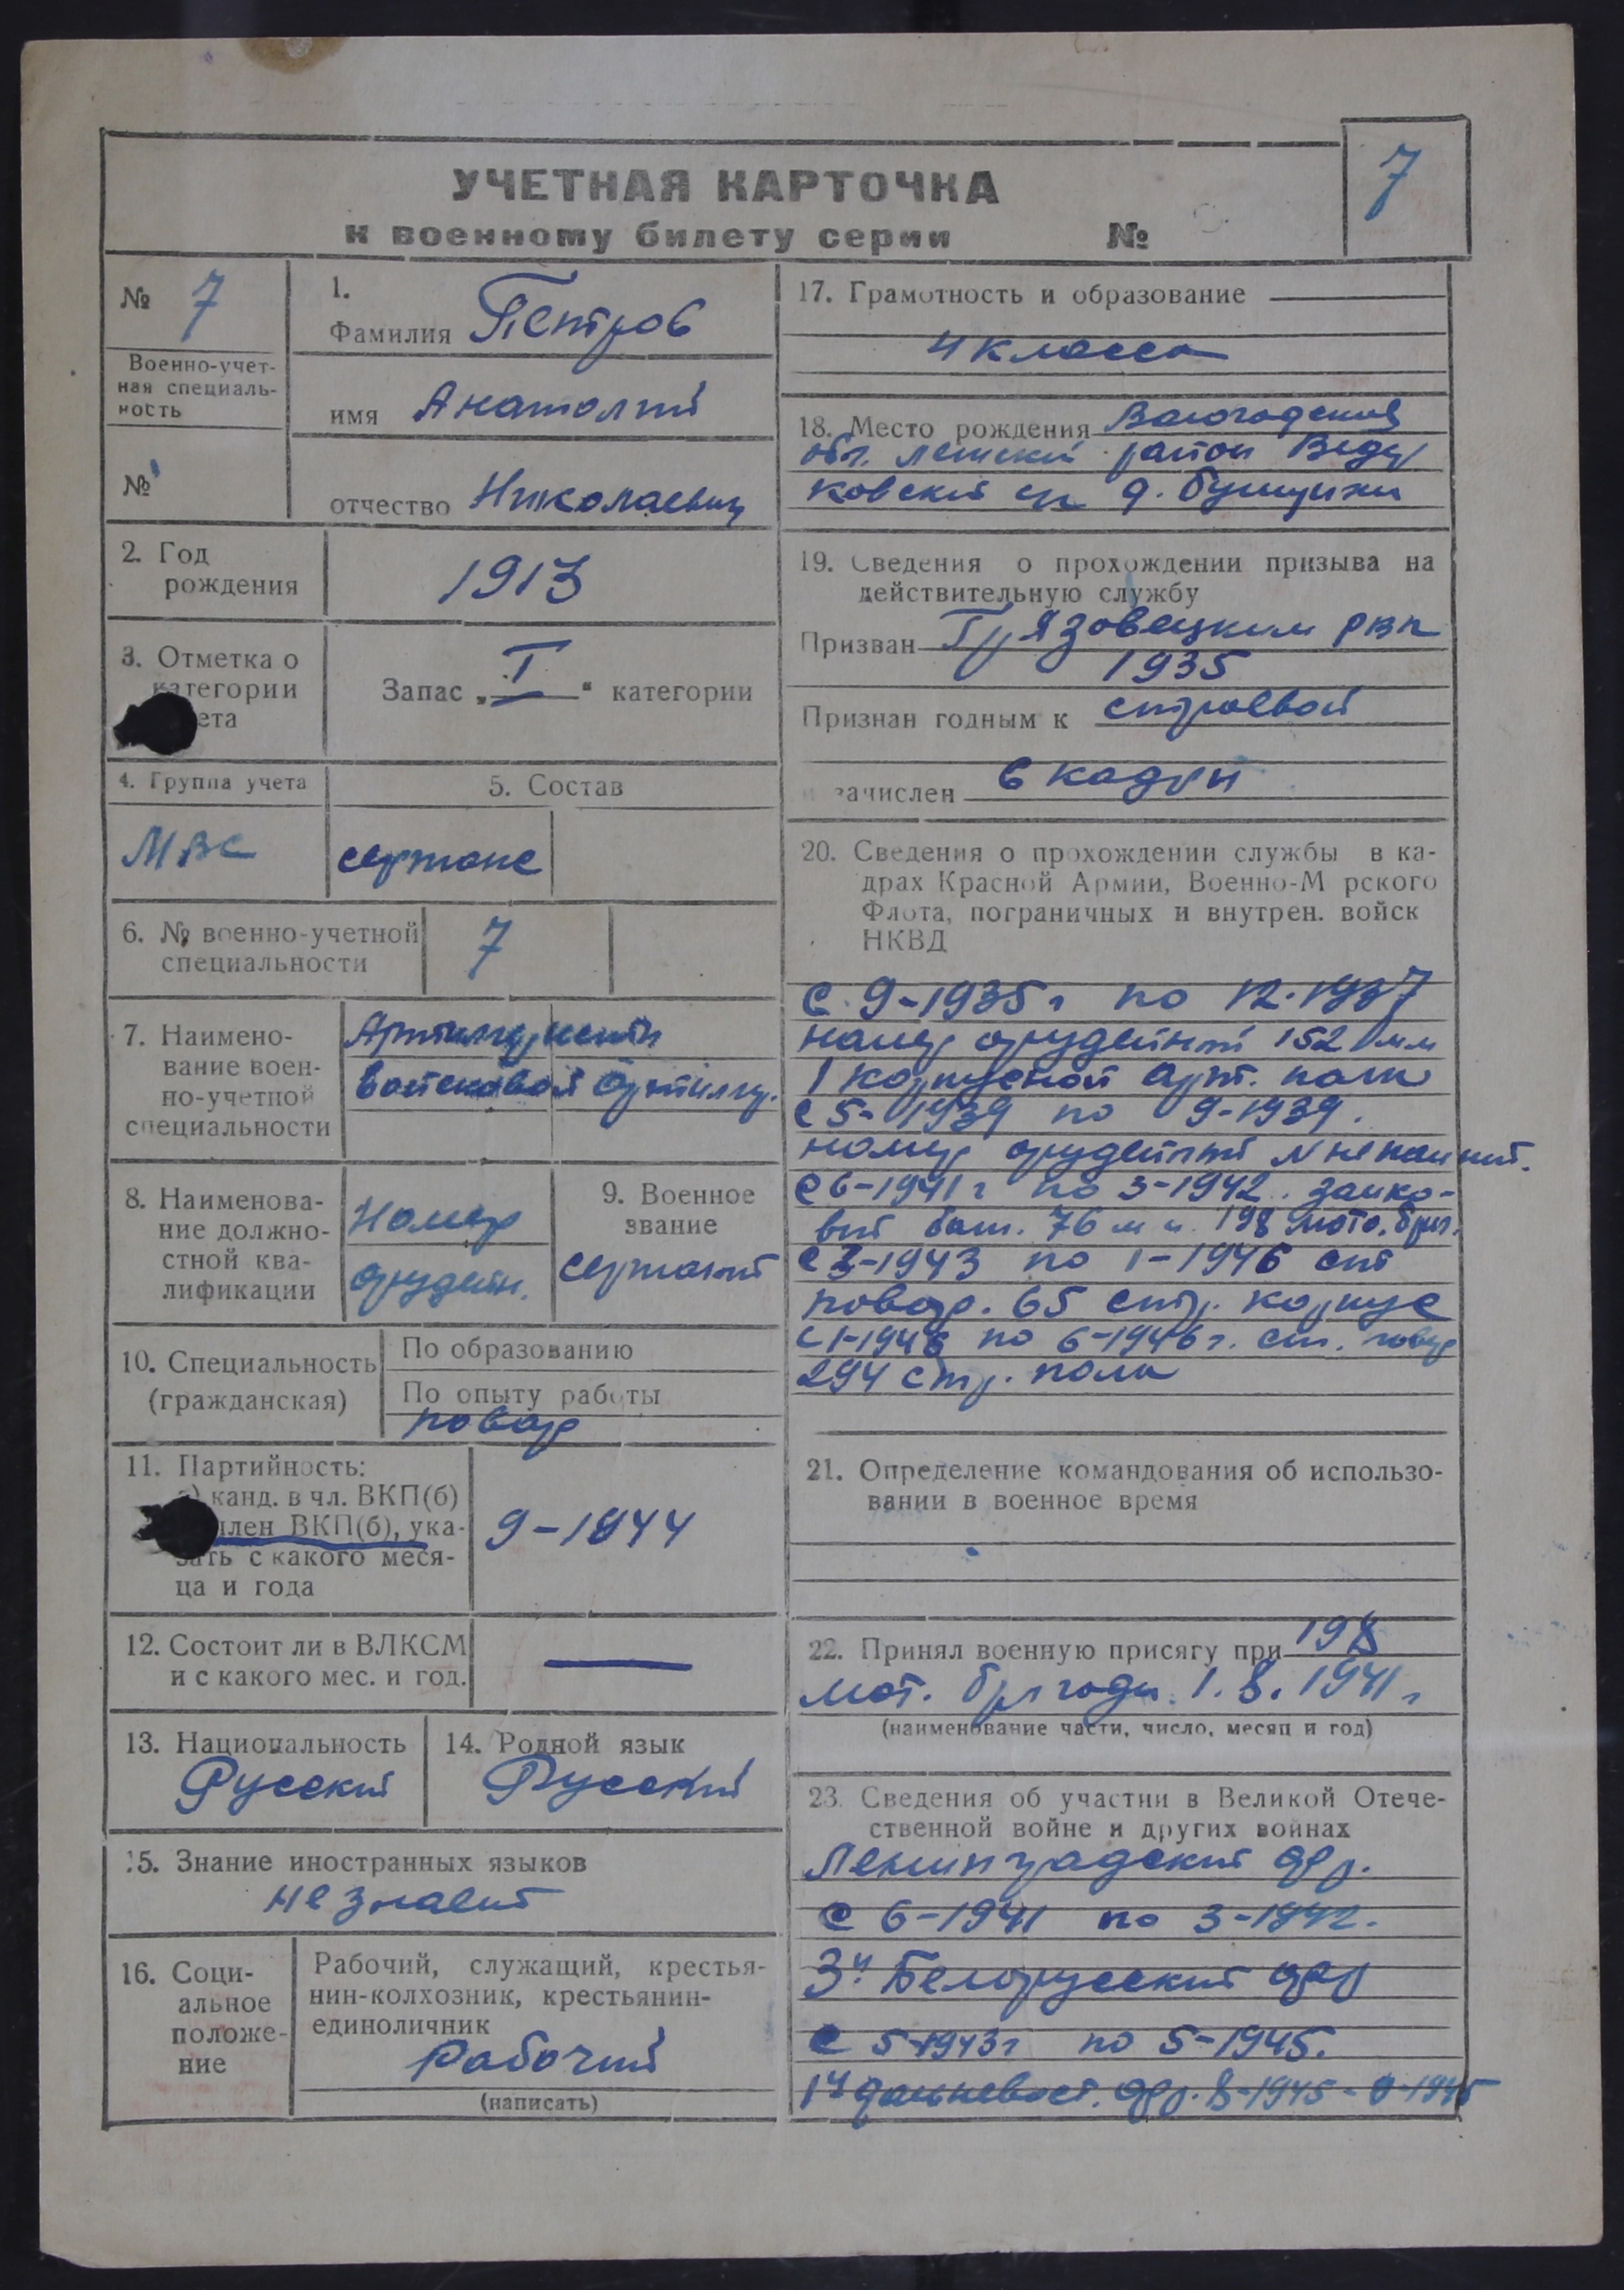 7
УЧЕТНАЯ КАРТОЧКА
к военному билету серии №
№ 7
Военно-учет-
ная специаль-
ность
№
1.
Фамилия Петров
имя Анатолий
отчество Николаевич
2. Год
рождения
1913
3. Отметка о
категории
ета
Запас „I“ категории
4. Группа учета
МВС
5. Состав
сержанс
6. № военно-учетной
специальности
7
7. Наимено-
вание воен-
но-учетной
специальности
войсковой артиллер.
8. Наименова-
ние должно-
стной ква-
лификации
Номер
орудейн.
9. Военное
звание
сержант
10. Специальность
(гражданская)
По образованию
По опыту работы
повар
11. Партийность:
а) канд. в чл. ВКП(б)
член ВКП(б), ука-
зать с какого меся-
ца и года
9-1944
12. Состоит ли в ВЛКСМ
и с какого мес. и год.
—
13. Национальность
Русский
14. Родной язык
Русский
15. Знание иностранных языков
не знает
16. Соци-
альное
положе-
ние
Рабочий, служащий, крестья-
нин-колхозник, крестьянин-
единоличник
Рабочий
(написать)
17. Грамотность и образование
4 класса
18. Место рождения Вологодская
обл. район
ковский с/с д.
19. Сведения о прохождении призыва на
действительную службу
Призван Грязовецким РВК
1935
Признан годным к строевой
и зачислен в кадры
20. Сведения о прохождении службы в ка-
драх Красной Армии, Военно-М рского
Флота, пограничных и внутрен. войск
НКВД
С 9-1935 г по 12-1937
номер орудейный 152 мм
1 корпусной арт. полк
с 5-1939 по 9-1939.
номер орудейный № не помнит.
С 6-1941 г по 3-1942. замко-
вый бат. 76 мм. 198 мото. бриг.
с 3-1943 по 1-1946 ст
повар. 65 стр. корпус
с 1-1946 по 6-1946 г. ст. повар
294 стр. полк
21. Определение командования об использо-
вании в военное время
22. Принял военную присягу при 198
мот. бригаде 1.8.1941 г
(наименование части, число, месяц и год)
23. Сведения об участии в Великой Отече-
ственной войне и других войнах
Ленинградский фр.
С 6-1941 по 3-1942.
3й Белорусский фр
С 5-1943 г по 5-1945.
1й дальневост. фр. 8-1945-9-1945